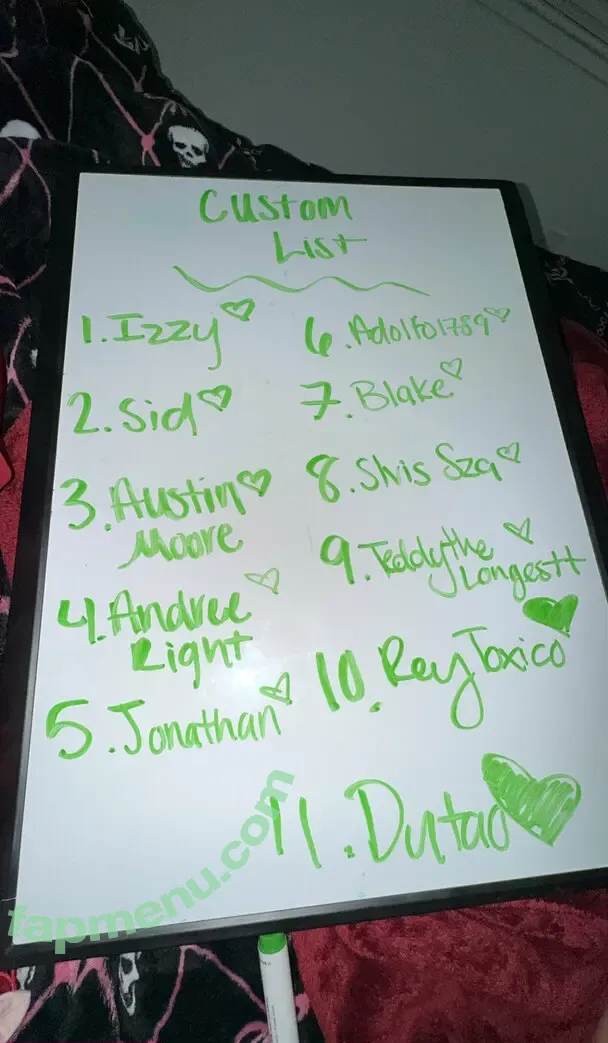 Custom
List
1. Izzy
2. Sid
3. Austin
Moore
4. Andree
Right
5. Jonathan
6. Adolfo1789
7. Blake
8. Shis Sza
9. Teddythe
Longestt
10. Rey Toxico
11. Dutad
fapmenu.com